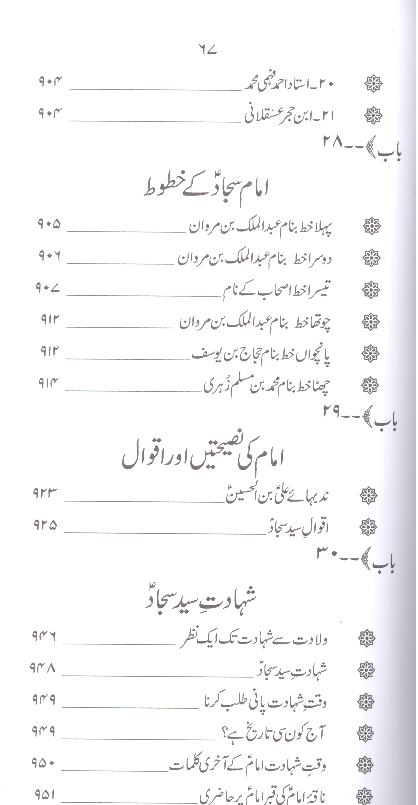 ۶۷
۲۰۔ استاد احمد فہمی محمد ۹۰۴
۲۱۔ ابن حجر عسقلانی ۹۰۴
باب ﴾--۲۸
امام سجادؑ کے خطوط
پہلا خط بنام عبدالملک بن مروان ۹۰۵
دوسرا خط بنام عبدالملک بن مروان ۹۰۶
تیسرا خط اصحاب کے نام ۹۰۷
چوتھا خط بنام عبدالملک بن مروان ۹۱۲
پانچواں خط بنام حجاج بن یوسف ۹۱۲
چھٹا خط بنام محمد بن مسلم زُہری ۹۱۴
باب ﴾--۲۹
امام کی نصیحتیں اور اقوال
ندبہائے علیؑ بن الحسینؑ ۹۲۳
اقوالِ سید سجادؑ ۹۲۵
باب ﴾--۳۰
شہادتِ سید سجادؑ
ولادت سے شہادت تک ایک نظر ۹۴۶
شہادتِ سید سجادؑ ۹۴۸
وقتِ شہادت پانی طلب کرنا ۹۴۹
آج کون سی تاریخ ہے؟ ۹۴۹
وقتِ شہادت امامؑ کے آخری کلمات ۹۵۰
ناقۂ امامؑ کی قبرِ امامؑ پر حاضری ۹۵۱